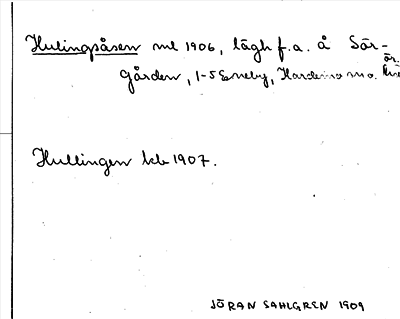 Hulingsåsen ml 1906, lägh f.a. å Sör-
gården, 1-5 Eneby,
Hullingen kb 1907.
JÖRAN SAHLGREN 1909